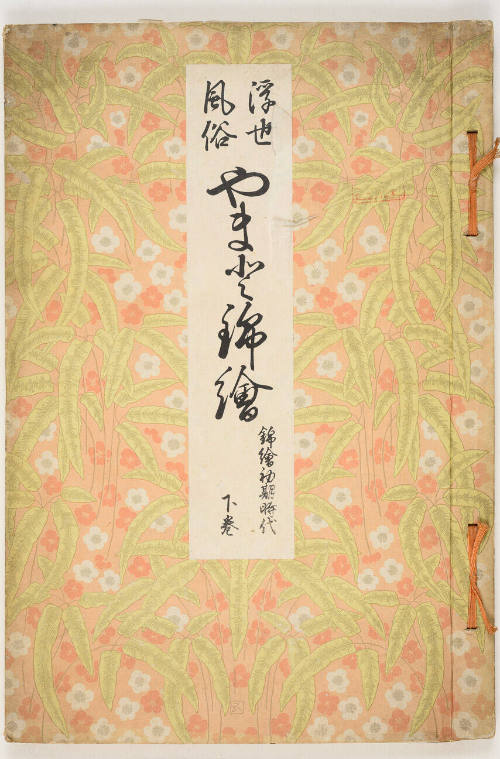 浮世
風俗
やまと錦繪
錦繪初期時代
下巻